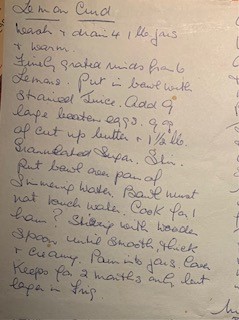 Lemon Curd
Wash & drain 4 1 lb. jars
& warm.
Finely grated rinds from 6
Lemons. Put in bowl with
strained Juice. Add 9
large beaten eggs. 9 oz
of cut up butter & 1 1/2 lb.
Granulated Sugar. Stir.
Put bowl over pan of
Simmering Water. Bowl must
not touch water. Cook for 1
hour? Stirring with wooden
Spoon until smooth, thick
& creamy. Pour into jars Cover
Keeps for 2 months only dont
in Frig